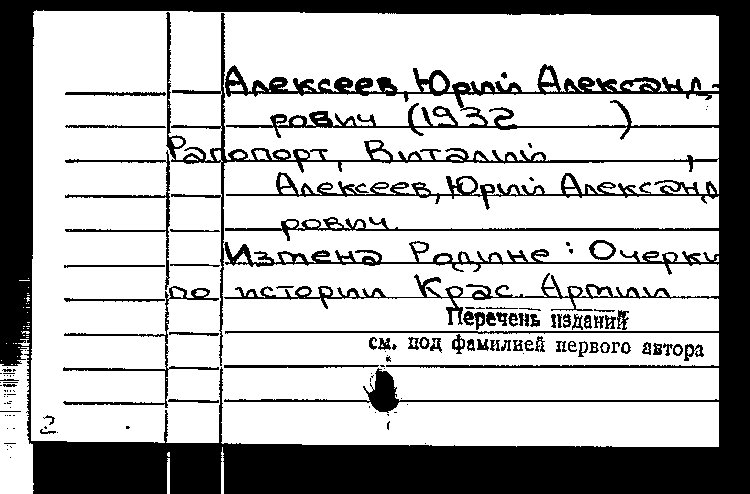 Алексеев, Юрий Александ-
рович (1932        )
Рапопорт, Виталий        ,
Алексеев, Юрий Александ
рович.
Измена Родине : Очерки
по истории Крас. Армии
Перечень изданий
см. под фамилией первого автора
2